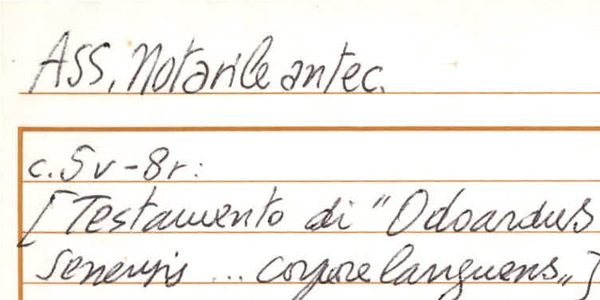 ASS, Notarile antec.
c. 5v-8r:
[Testamento di "Odoardus
senensis ... corpore languens"]